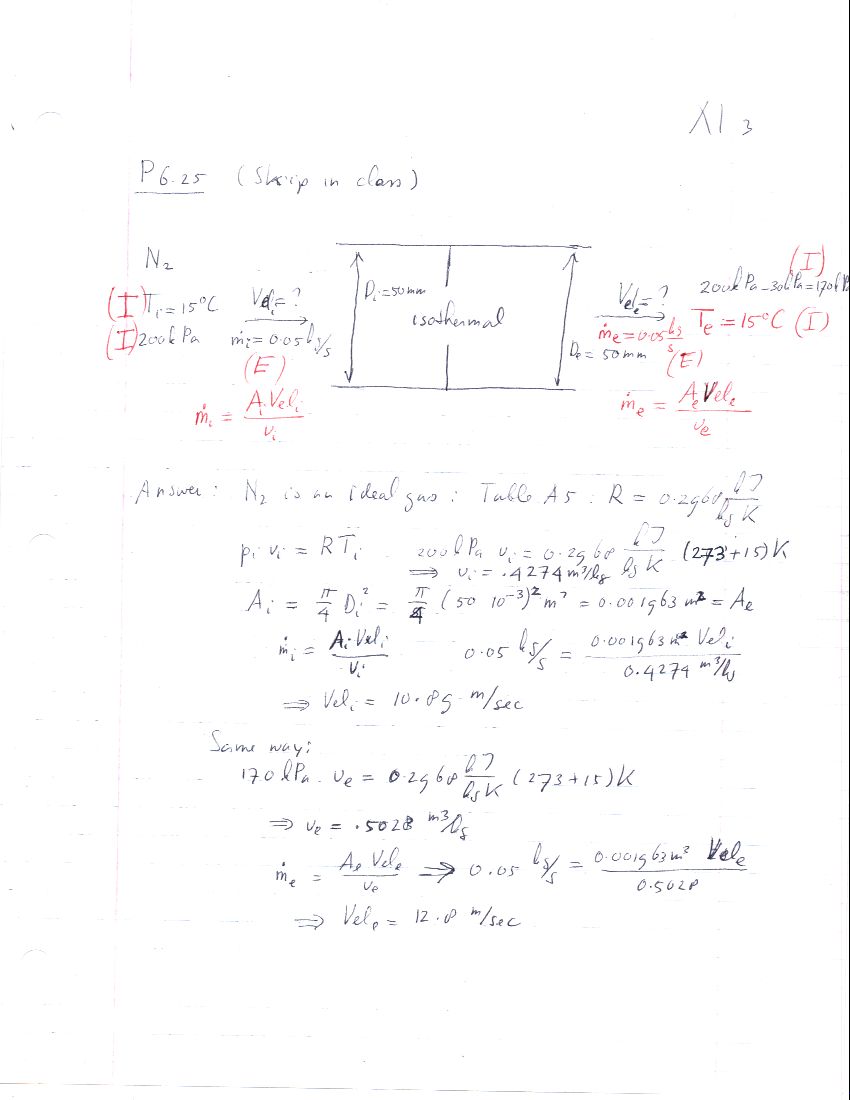 XI 3
P 6.25 (Skip in class)
N₂
(I) Tᵢ = 15°C
(I) 200 kPa
Velᵢ = ?
ṁᵢ = 0.05 kg/s
(E)
ṁᵢ = AᵢVelᵢ/vᵢ
Dᵢ = 50 mm
isothermal
Dₑ = 50 mm
Velₑ = ?
ṁₑ = 0.05 kg/s
(E)
(I)
200 kPa - 30 kPa = 170 kPa
Tₑ = 15°C (I)
ṁₑ = AₑVelₑ/vₑ
Answer: N₂ is an ideal gas: Table A5: R = 0.2968 kJ/kg K
pᵢ vᵢ = R Tᵢ 200 kPa vᵢ = 0.2968 kJ/kg K (273+15) K
⟹ vᵢ = .4274 m³/kg
Aᵢ = π/4 Dᵢ² = π/4 (50 10⁻³)² m² = 0.001963 m² = Aₑ
ṁᵢ = AᵢVelᵢ/vᵢ 0.05 kg/s = 0.001963 m² Velᵢ/0.4274 m³/kg
⟹ Velᵢ = 10.89 m/sec
Same way:
170 kPa vₑ = 0.2968 kJ/kg K (273+15) K
⟹ vₑ = .5028 m³/kg
ṁₑ = Aₑ Velₑ/vₑ ⟹ 0.05 kg/s = 0.001963 m² Velₑ/0.5028
⟹ Velₑ = 12.8 m/sec